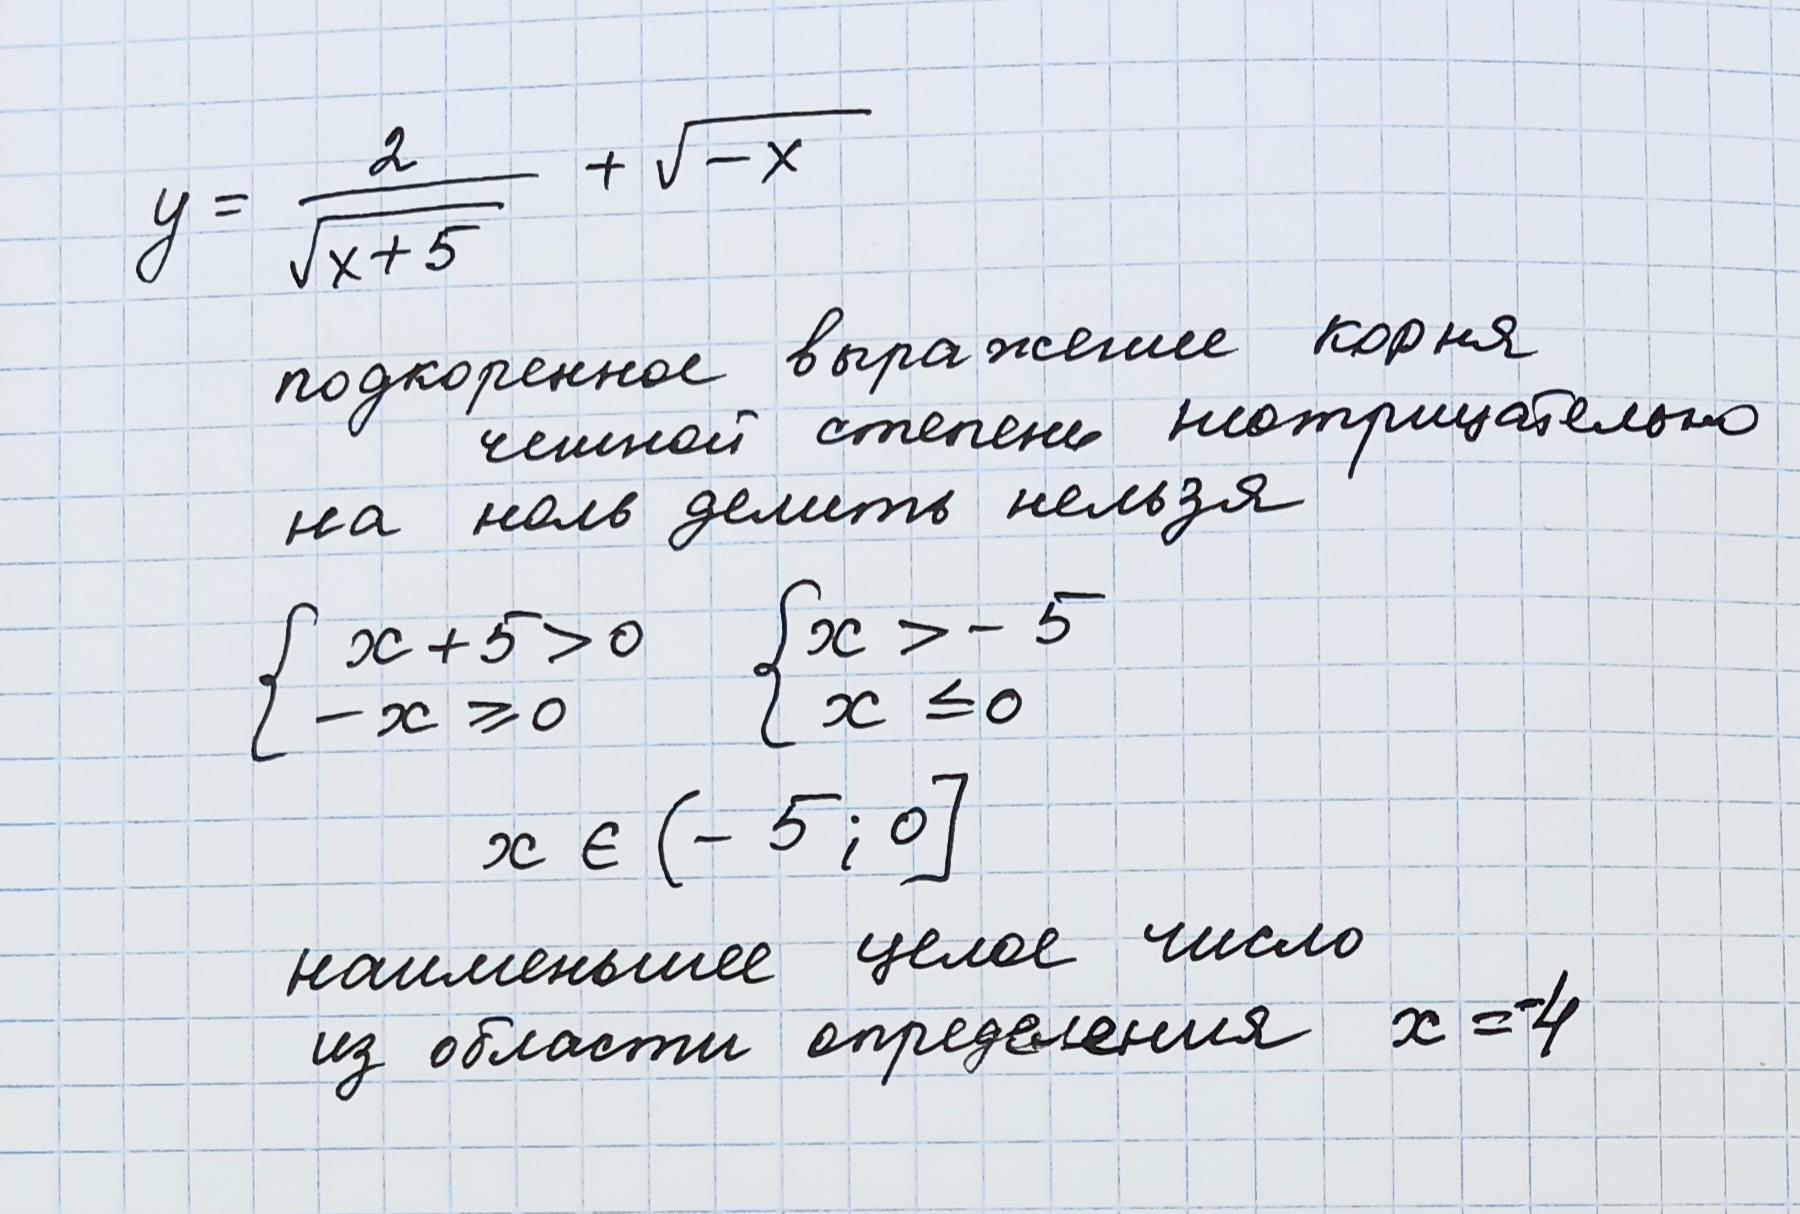 y = 2/√(x+5) + √(-x)
подкоренное выражение корня
четной степени неотрицательно
на ноль делить нельзя
{ x + 5 > 0 { x > - 5
- x ≥ 0 x ≤ 0
x ∈ (- 5 ; 0]
наименьшее целое число
из области определения x = -4